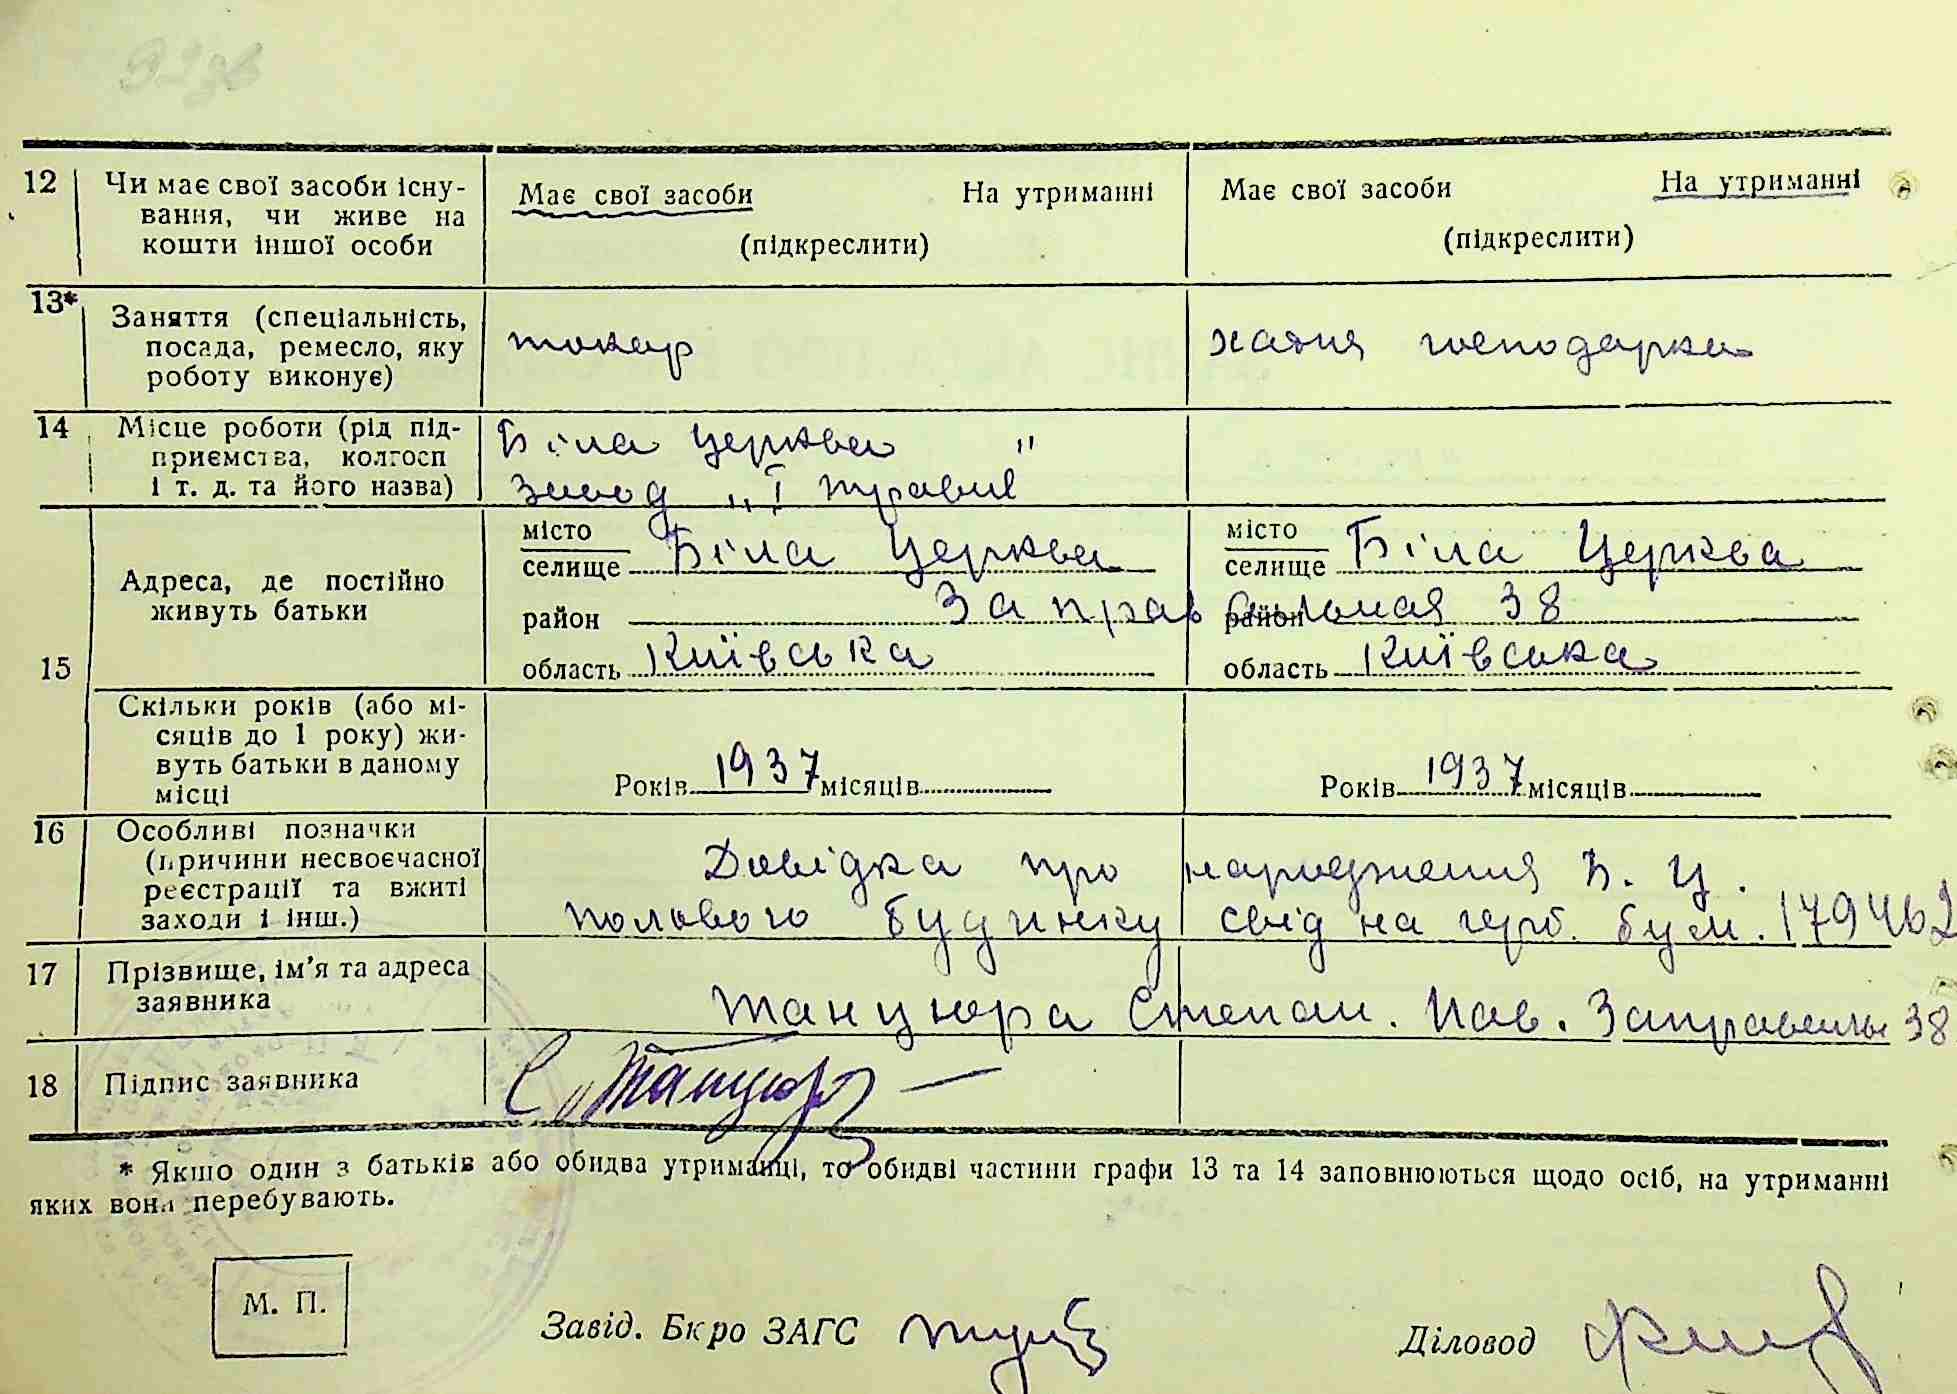 12 Чи має свої засоби існу- Має свої засоби На утриманні Має свої засоби На утриманні
вання, чи живе на
кошти іншої особи (підкреслити) (підкреслити)
13* Заняття (спеціальність,
посада, ремесло, яку токар хатня господарка
роботу виконує)
14 Місце роботи (рід під- Біла церква
приємства, колгосп
і т. д. та його назва) завод „1 травня"
15
Адреса, де постійно
живуть батьки
місто
селище Біла Церква
місто
селище Біла Церква
район Заправ район 38
область Київська область Київська
Скільки років (або мі-
сяців до 1 року) жи-
вуть батьки в даному
місці
Років 1937 місяців Років 1937 місяців
16 Особливі позначки
(причини несвоєчасної
реєстрації та вжиті
заходи і інш.)
Довідка про народження Б. Ц.
полового будинку свід на герб. бум. 179462
17 Прізвище, ім'я та адреса
заявника
Танцюра Степан. Пав. 38
18 Підпис заявника С. Танцюра
* Якщо один з батьків або обидва утриманці, то обидві частини графи 13 та 14 заповнюються щодо осіб, на утриманні
яких вони перебувають.
М. П.
Завід. Бюро ЗАГС Діловод